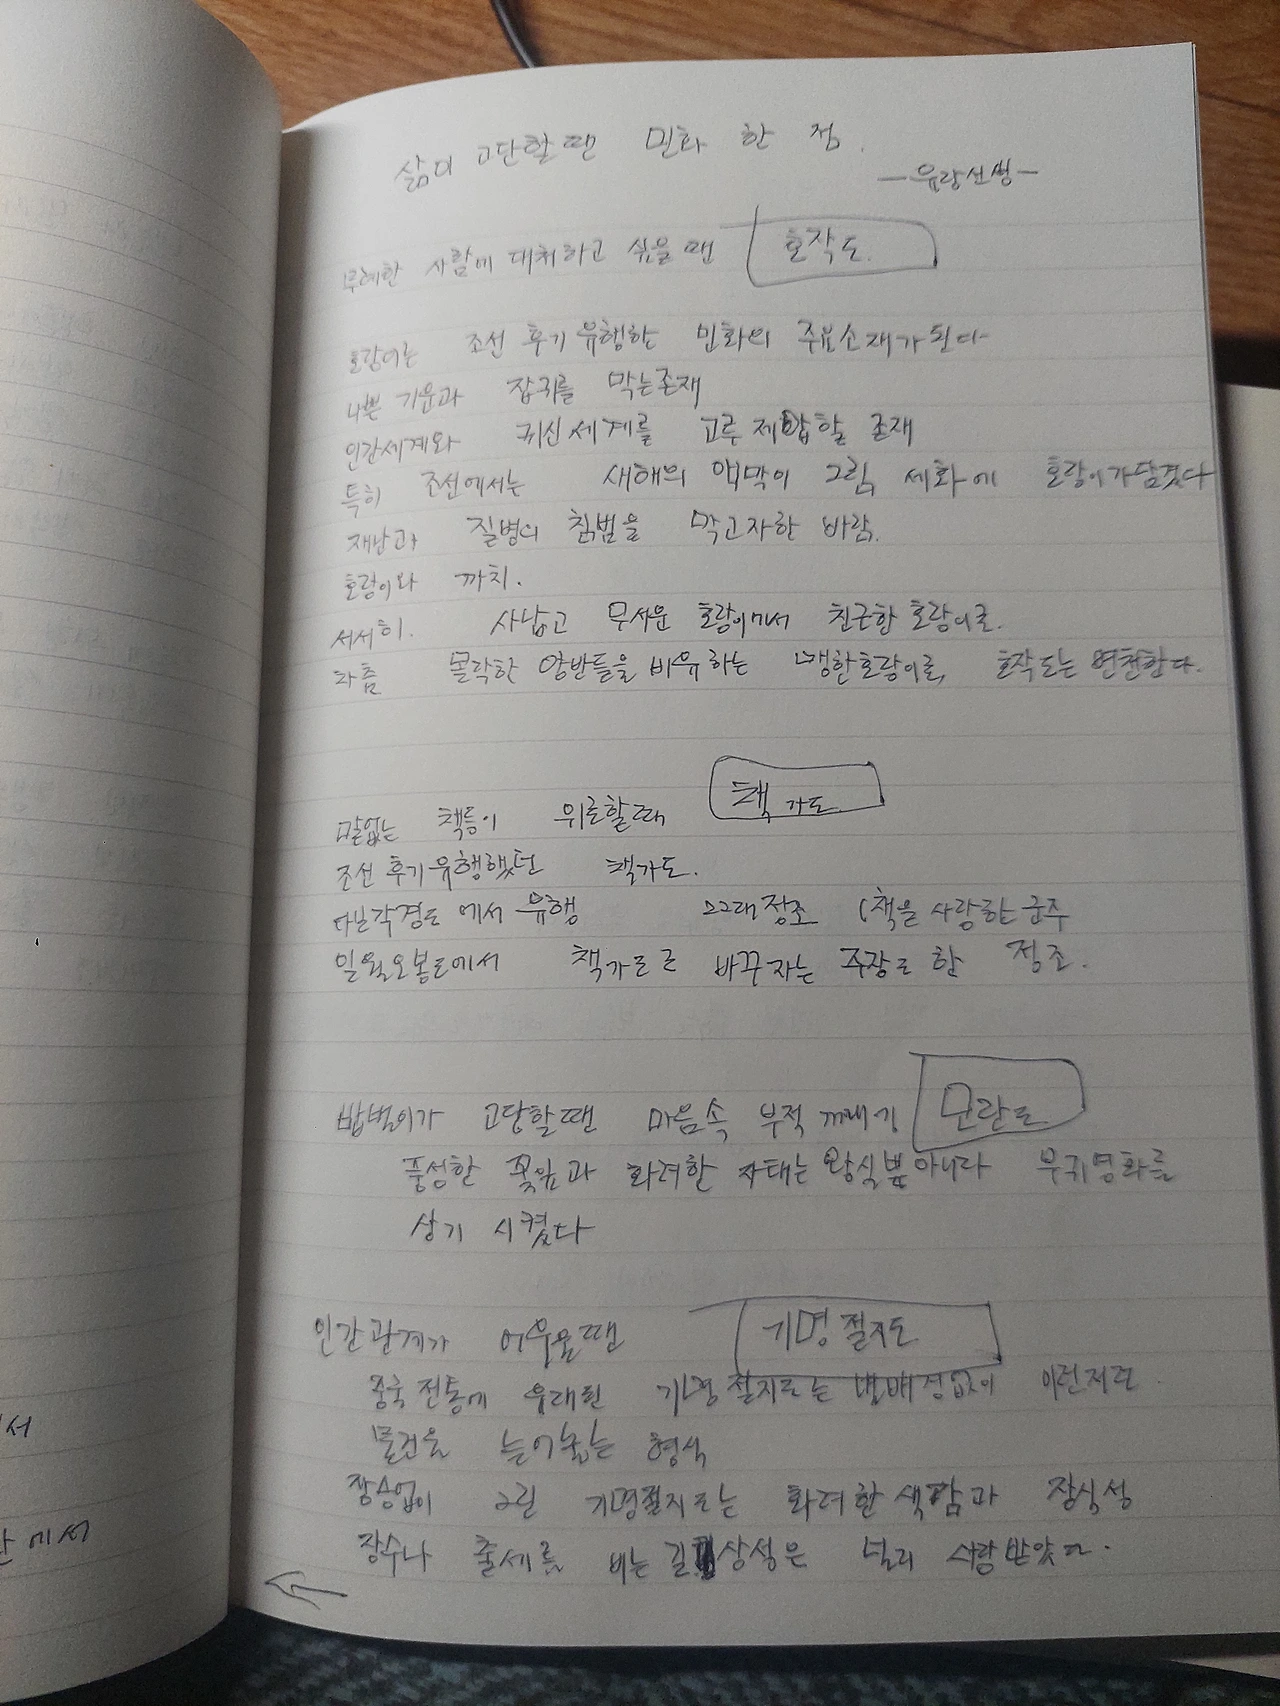 삶이 고단할땐 민화 한 점.
—유랑선생—
무례한 사람에 대처하고 싶을땐 호작도.
호랑이는 조선 후기 유행한 민화의 주요소재가된다
나쁜 기운과 잡귀를 막는존재
인간세계와 귀신세계를 고루 제압할 존재
특히 조선에서는 새해의 액막이 그림, 세화에 호랑이가담겼다
재난과 질병의 침범을 막고자한 바람.
호랑이와 까치.
서서히. 사납고 무서운 호랑이에서 친근한 호랑이로.
차츰 몰락한 양반들을 비유하는 맹한호랑이로, 호작도는 변천한다.
말없는 책들이 위로할때, 책가도
조선 후기유행했던 책가도.
다각경도 에서 유행 22대정조 (책을 사랑한군주
일월오봉도에서 책가도로 바꾸자는 주장도 함 정조.
밥벌이가 고단할땐 마음속 부적 꺼내기 모란도
풍성한 꽃잎과 화려한 자태는 왕실뿐아니라 부귀영화를
상기 시켰다
인간관계가 어려울땐 기명절지도
중국 전통에 유래된 기명절지도는 별배경없이 이런저런
물건을 늘어놓는 형식
장승업이 그린 기명절지도는 화려한색감과 장식성
장수나 출세를 비는 길상성은 널리 사랑받았다.
서
에서